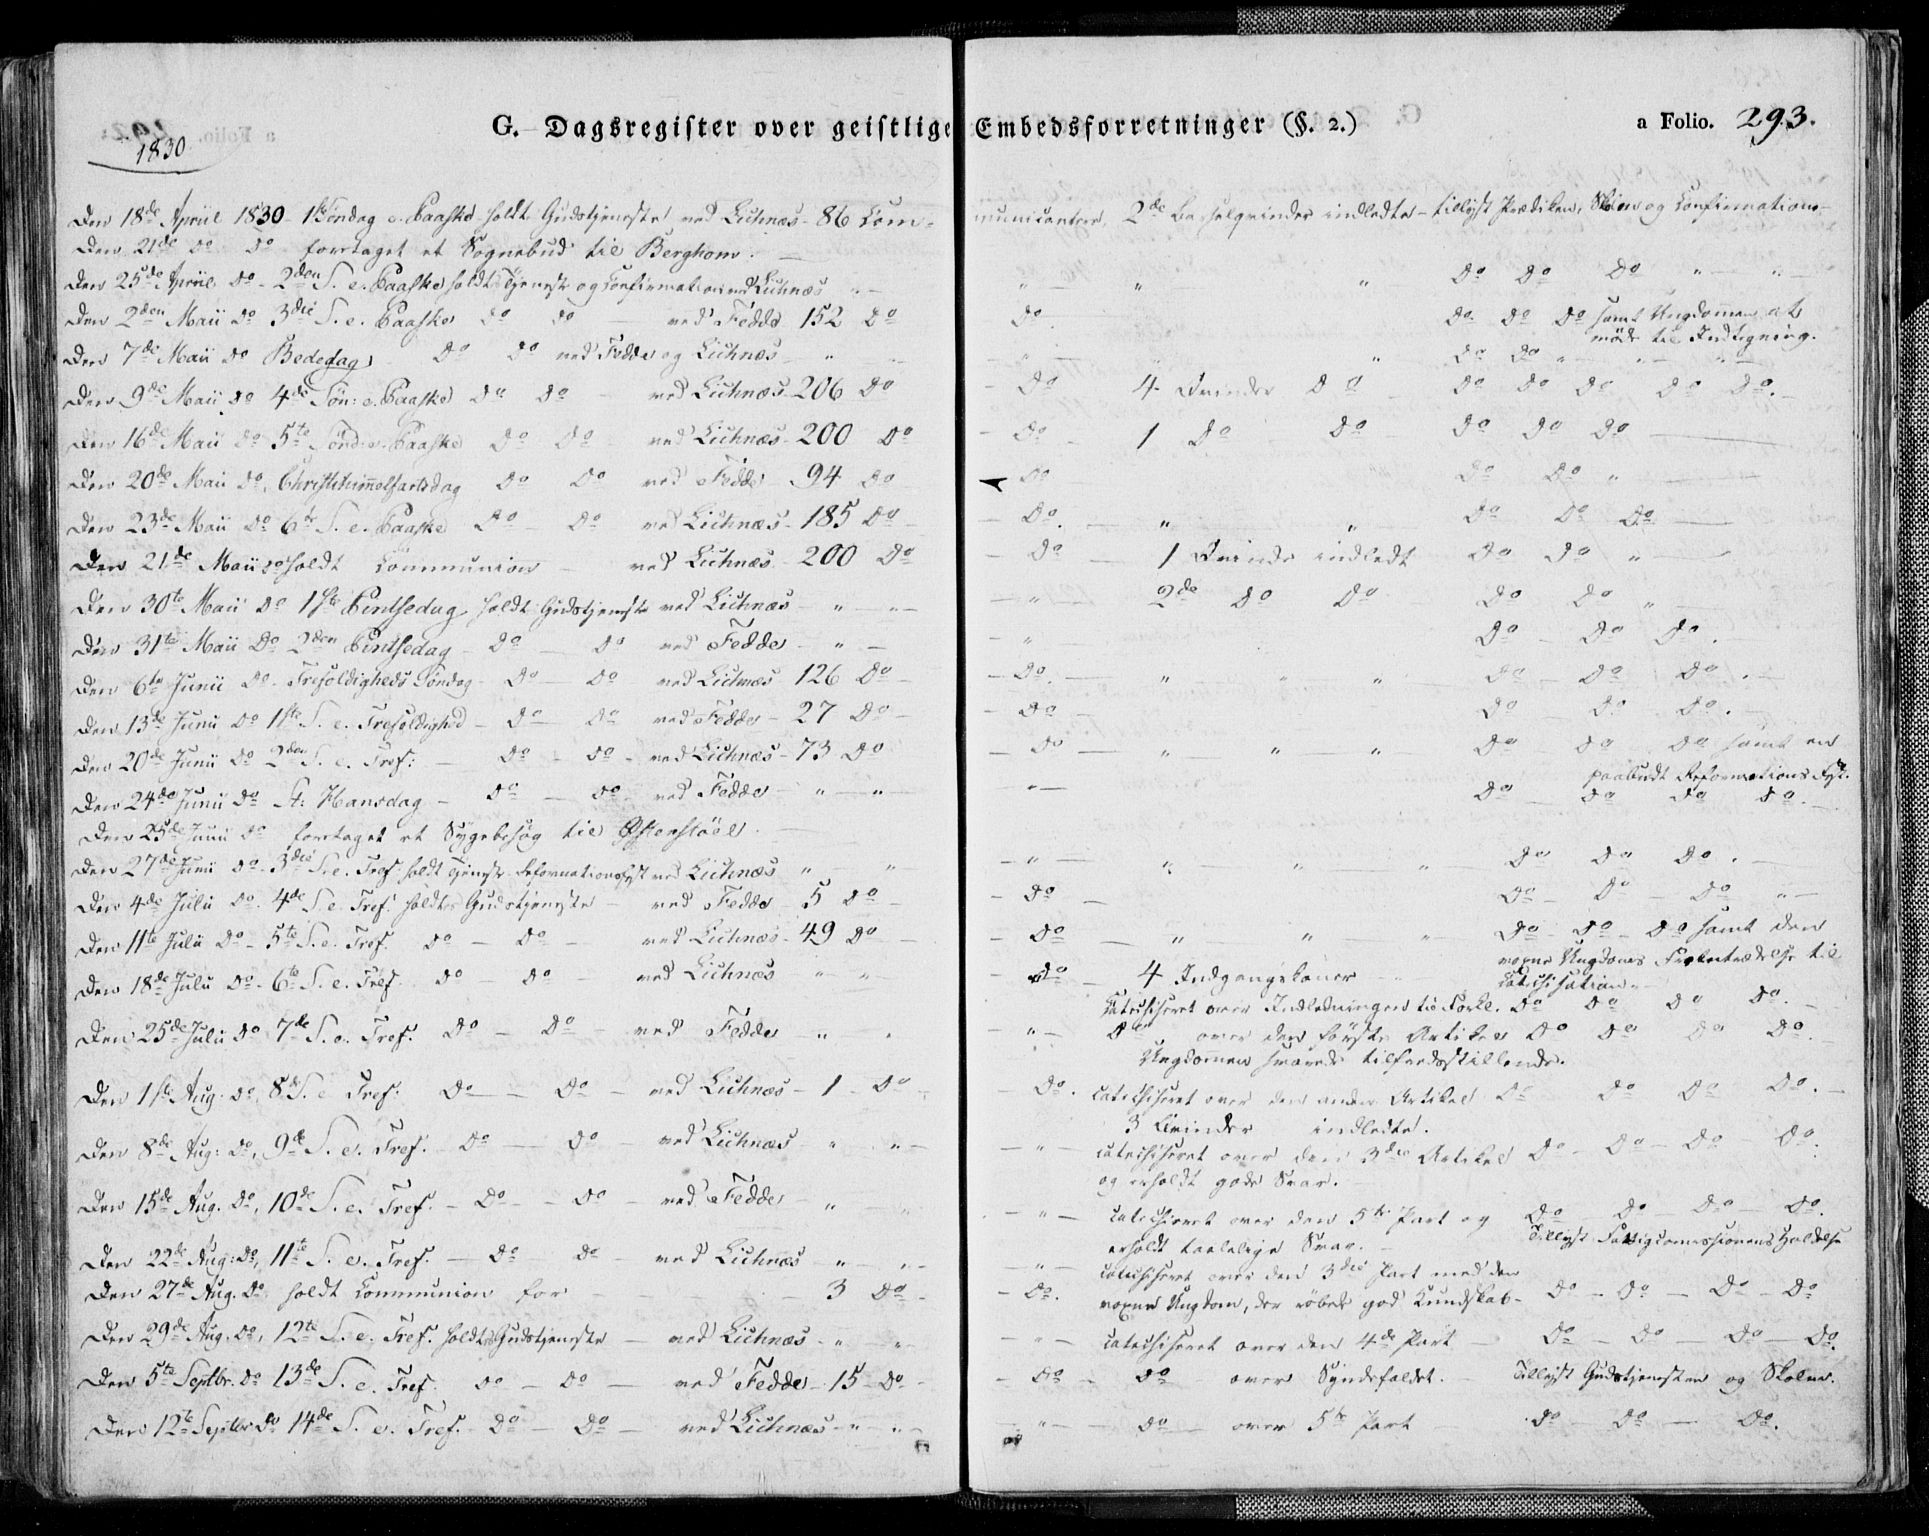 G. Dagsregister over geistlige Embedsforretninger (§. 2.) a Folio. 293.
1830
Den 18de Apriil 1830 1ste Søndag e. Paaske holdt Gudstjeneste ved Lichnæs - 86 Com-
municantere, 2de Barselqvinder indledte - tillyst Prædiken, Skolen og Confirmation -
Den 21de do do foretaget et Sognebud til Berghom.
Den 25de Apriil do - 2den S. e. Paaske holdt Tjeneste og Confirmation ved Lichnæs " - " " " do do do " - " -
Den 2den Maii do 3die S. e. Paaske do do - ved Fedde 152 do do do do do samt Ungdommen at
møde til Indtegning.
Den 7de Maii do Bededag - do do ved Fedde og Lichnæs - " - " " do do " - " -
Den 9de Maii do 4de Søn: e. Paaske do do - ved Lichnæs - 206 do - do 4 Qvinder do do do do do do.
Den 16de Maii do 5te Sønd: e. Paaske do do ved Lichnæs - 200 do - do - 1 do do - do do do
Den 20de Maii do, Christihimmelfartsdag do do ved Fedde - 94 do do do do "
Den 23de Maii do 6te S. e. Paaske do do ved Lichnæs - 185 do - do. - " " do do do
Den 21de Maii do holdt Communion - ved Lichnæs - 200 do - do - 1 Qvinde indledt do do "
Den 30te Maii do 1ste Pintsedag holdt Gudstjeneste ved Lichnæs - " - - " - 2de do do do do "
Den 31te Maii do 2den Pintsedag - do - do ved Fedde - " - - " do - do do.
Den 6te Junii do - Trefoldigheds Søndag - do - do - ved Lichnæs 126 do - do. - " " " do - do do.
Den 13de Junii do 1ste S. e. Trefoldighed - do - do - ved Fedde - 27 do - - do - do - do do.
Den 20de Junii do 2den S. e. Tref: - do - do - ved Lichnæs - 73 do - do - " " - " do do do samt en
paabudt Reformations Fest.
Den 24de Junii do St: Hansdag - do - do ved Fedde - " - " - " - do - do do do.
Den 25de Junii do foretaget et Sygebesøg til Østerstöel.
Den 27de Junii do - 3die S. e. Tref: holdt Tjeneste Reformationsfest ved Lichnæs " - " - " - " " " do do do.
Den 4de Julii do. 4de S. e. Tref. holdt Gudstjeneste - ved Fedde - 5 do - - do - do - do - do " -
Den 11te Julii do - 5te S. e. Tref. do - do - ved Lichnæs - 49 do - - do - " " " do - do - do samt den
voxne Ungdoms Fremtrædelse til
Catechisation.
Den 18de Julii do - 6te S. e. Tref. do - do - ved Lichnæs " " - do - 4 Indgangskoner
Catechiseret over Indledningen til Forkl. do do do do.
Den 25de Julii do 7de S. e. Tref. do - do - ved Fedde " " - " - do over den første Artikel do do do do.
Ungdommen svarede tilfredsstillende.
Den 1ste Aug: do, 8de S. e. Tref: do - do - ved Lichnæs - 1 - do - - do. catechiseret over den anden Artikel do do do do.
3 Qvinder indledte.
Den 8de Aug: do, 9de S. e. Tref. do - do - ved Lichnæs " " - - " - catechiseret over den 3die Artikel do - do - do - do.
og erholdt gode Svar.
Den 15de Aug. do, 10de S. e. Tref. - do - do - ved Fedde - " " - " - catechiseret over den 5te Part og do do - do - do.
erholdt taalelige Svar. Tillyst Fattigcommissionens Holdelse
Den 22de Aug: do, 11te S. e. Tref. - do do ved Lichnæs " - " - " - catechiseret over den 3die Part med den
Den 27de Aug. do holdt Communion for - 3 do - - do. voxne Ungdom, der røbede god Kundskab - do - do - do - do
Den 29de Aug. do, 12te S. e. Tref. holdt Gudstjeneste - ved Lichnæs - " - " - " - catechiseret over den 4de Part do - do - do - do.
Den 5te Septbr. do 13de S. e. Tref. do - do - ved Fedde - 15 do - - do - do - over Syndefaldet. - Tillyst Gudstjenesten og Skolen.
Den 12te Septbr do 14de S. e. Tref. - do - do - ved Lichnæs - " - " - " - do - over 5te Part do do - do.